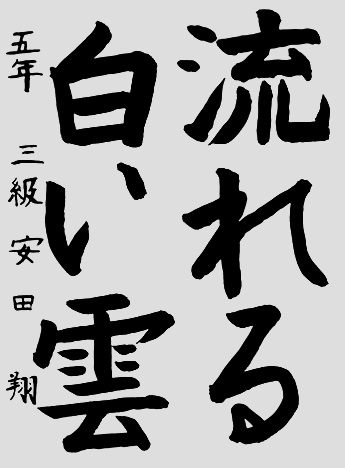 流れる
白い雲
五年 三級 安田 翔